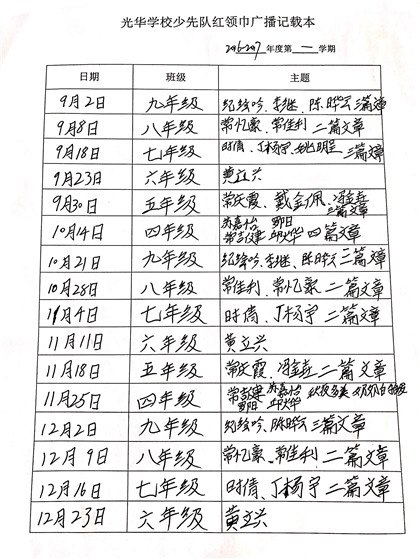 光华学校少先队红领巾广播记载本
2016-2017 年度第 一 学期
日期 班级 主题
9月2日 九年级 纪绘吟、李继、陈晔 三篇文章
9月8日 八年级 常忆豪、常佳利 二篇文章
9月18日 七年级 时倩、丁杨宇、姚明 三篇文章
9月23日 六年级 黄立兴
9月30日 五年级 常天霞、戴金佩、 三篇文章
10月14日 四年级 苏嘉怡 常 建 邱大华 四篇文章
10月21日 九年级 纪绘吟、李继、陈晔 三篇文章
10月28日 八年级 常佳利、常忆豪 二篇文章
11月4日 七年级 时倩、丁杨宇 二篇文章
11月11日 六年级 黄立兴
11月18日 五年级 常天霞、 二篇文章
11月25日 四年级 常 建 苏嘉怡 邱大华
12月2日 九年级 纪绘吟、陈晔 三篇文章
12月9日 八年级 常忆豪、常佳利 二篇文章
12月16日 七年级 时倩、丁杨宇 二篇文章
12月23日 六年级 黄立兴